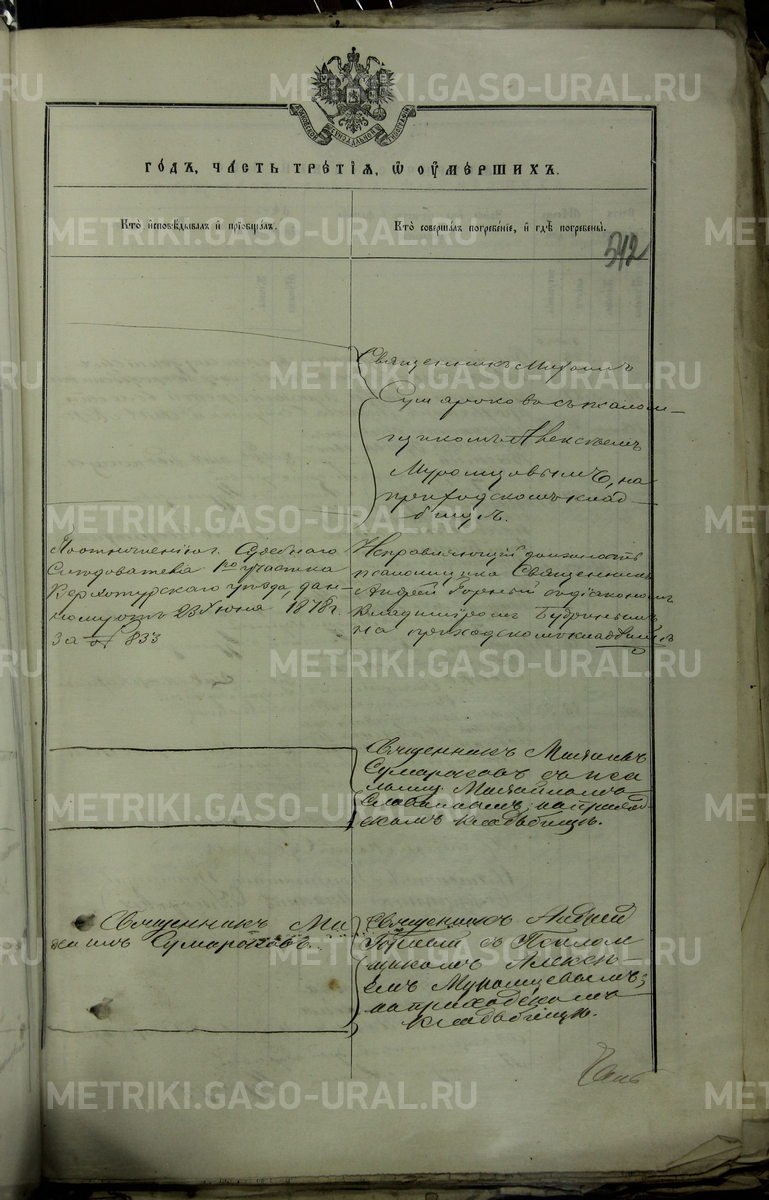 METRIKI.GASO-URAL.RU
Го́дъ, ча́сть тре́тїѧ, ѡ҆ ᲂу҆ме́ршихъ.
Кто̀ и҆сповѣ́дывалъ и҆ прїѡбща́лъ.
Кто̀ соверша́лъ погребе́нїе, и҆ гдѣ̀ погребены̀.
542
Священникъ Михаилъ
Сумароковъ съ псалом-
щикомъ Алексѣемъ
Муромцовымъ, на
приходскомъ клад-
бищѣ.
По отношенію г. Судебнаго
Слѣдователя 1го участка
Верхотурскаго уѣзда, дан-
ному отъ 23 Іюня 1878 г.
За № 833
Исправляющій должность
псаломщика Священникъ
Андрей Горный съ діакономъ
Владиміромъ
на приходскомъ кладбищѣ
Священникъ Михаилъ
Сумароковъ съ пса
ломщ. Михаиломъ
Славнинымъ, на приход-
скомъ кладбищѣ.
Священникъ Ми
хаилъ Сумароковъ.
Священникъ Андрей
Горный съ Псалом
щикомъ Алексѣ-
емъ Муромцевымъ;
на приходскомъ
кладбищѣ.